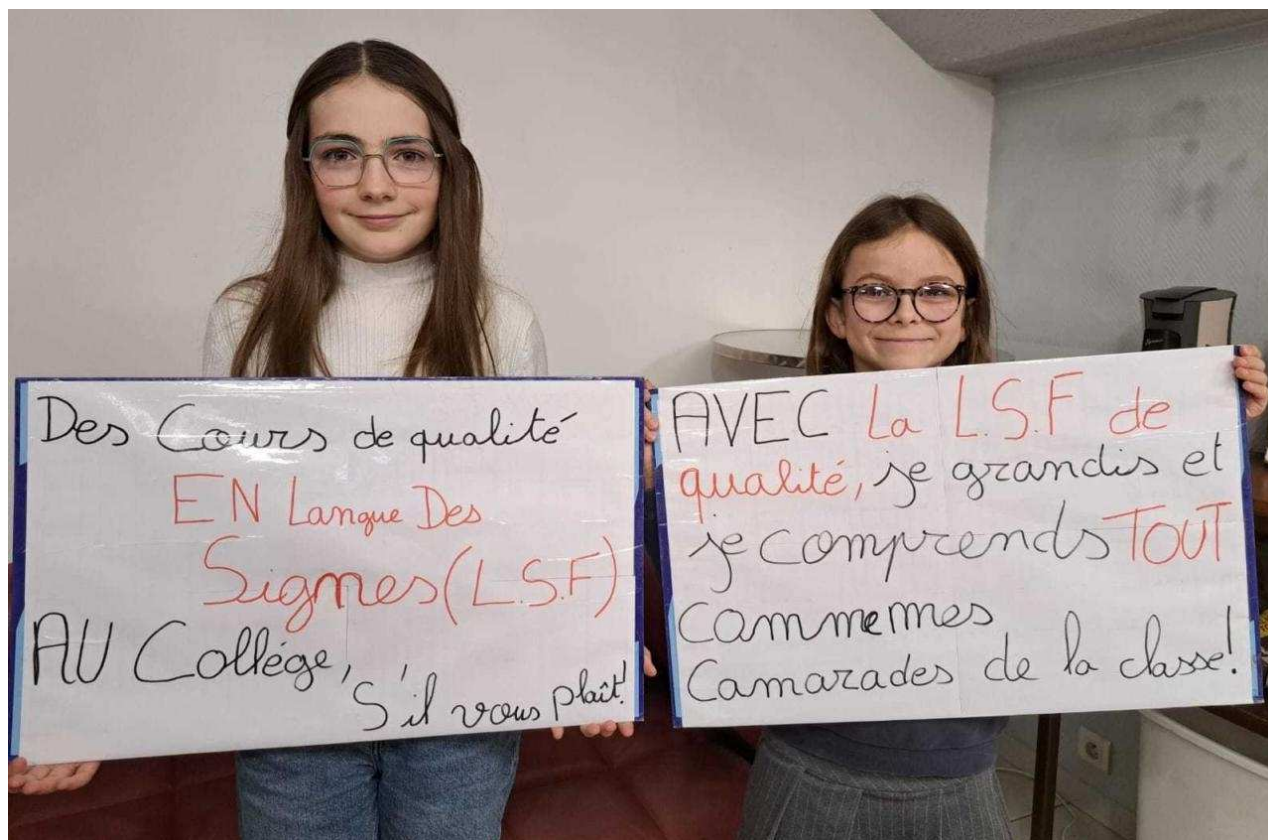 Des Cours de qualité
EN Langue Des
Signes (L.S.F)
AU Collége,
S'il vous plaît!
AVEC La L.S.F de
qualité, je grandis et
je comprends TOUT
comme mes
Camarades de la classe!